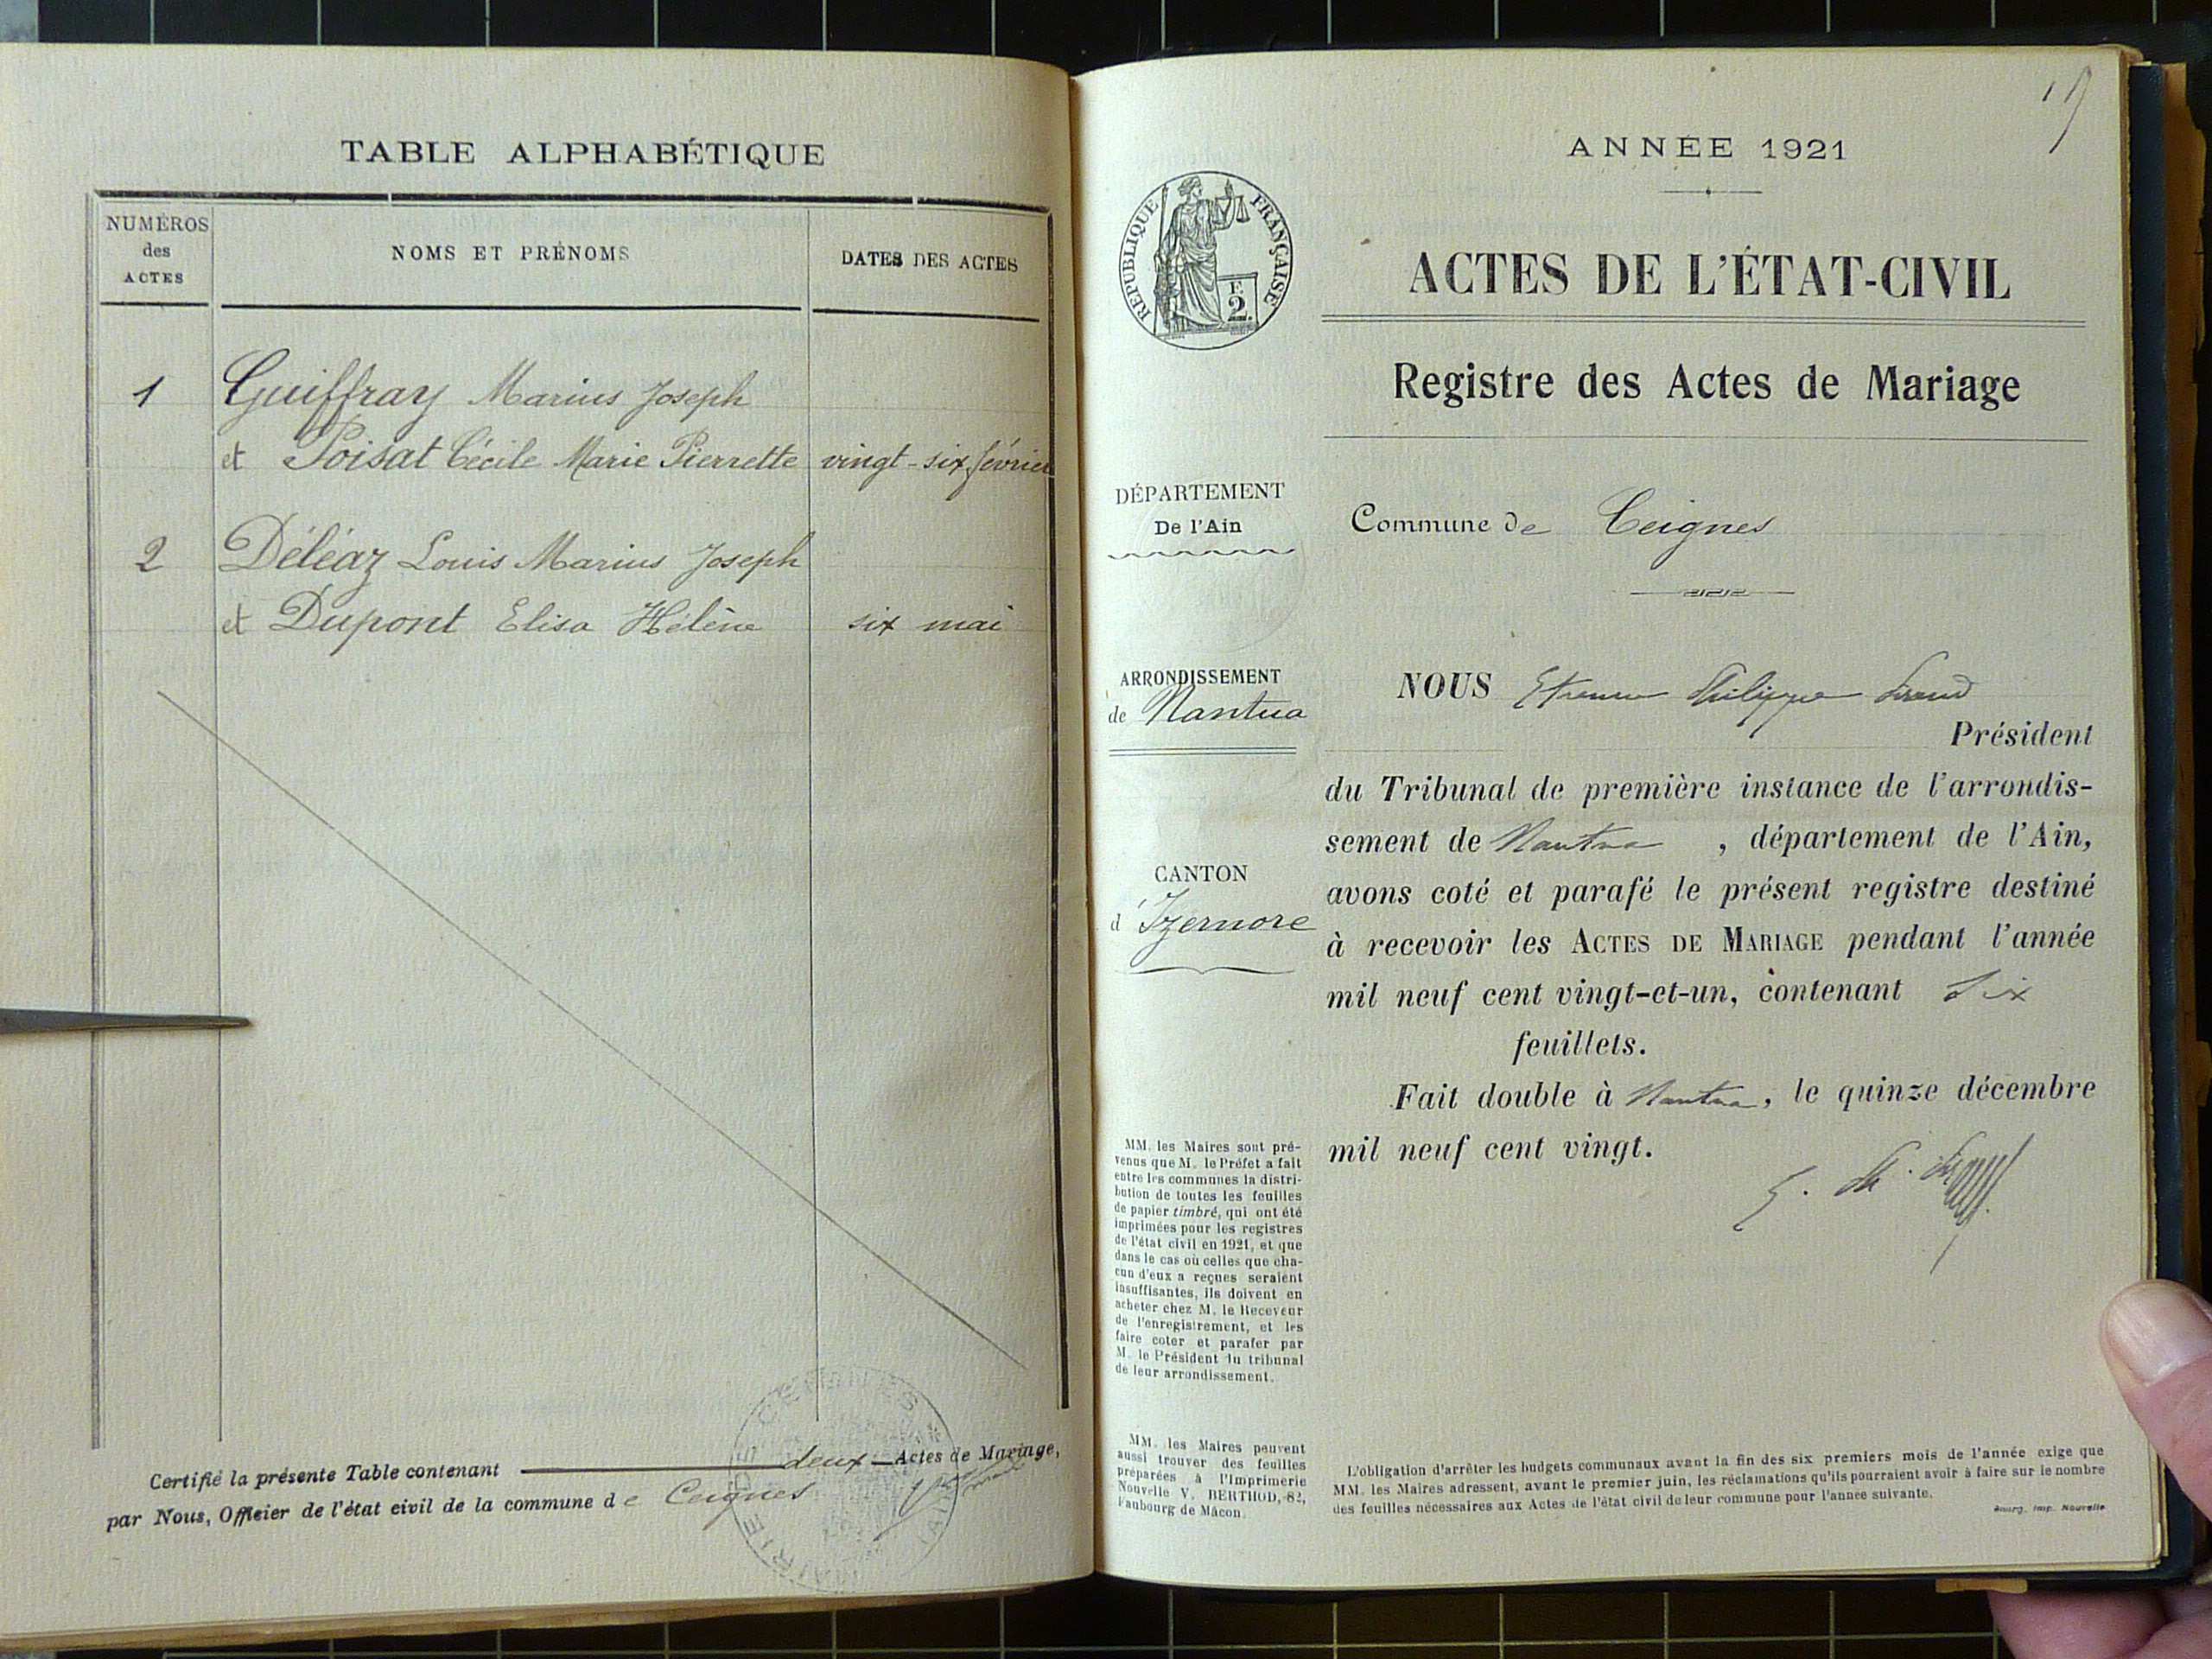 TABLE ALPHABÉTIQUE
NUMÉROS
des
ACTES
NOMS ET PRÉNOMS
DATES DES ACTES
1 Guiffray Marius Joseph
et Poisat Cécile Marie Pierrette vingt-six février
2 Déléaz Louis Marius Joseph
et Dupont Elisa Hélène six mai
Certifié la présente Table contenant deux Actes de Mariage,
par Nous, Officier de l'état civil de la commune de Ceignes
MAIRIE DE CEIGNES * (AIN)
ANNÉE 1921
RÉPUBLIQUE FRANÇAISE
F.
2
ACTES DE L'ÉTAT-CIVIL
Registre des Actes de Mariage
DÉPARTEMENT
De l'Ain
Commune de Ceignes
ARRONDISSEMENT
de Nantua
CANTON
d'Izernore
NOUS Etienne Philippe
Président
du Tribunal de première instance de l'arrondis-
sement de Nantua, département de l'Ain,
avons coté et parafé le présent registre destiné
à recevoir les ACTES DE MARIAGE pendant l'année
mil neuf cent vingt-et-un, contenant Six
feuillets.
Fait double à Nantua, le quinze décembre
mil neuf cent vingt.
MM. les Maires sont pré-
venus que M. le Préfet a fait
entre les communes la distri-
bution de toutes les feuilles
de papier timbré, qui ont été
imprimées pour les registres
de l'état civil en 1921, et que
dans le cas où celles que cha-
cun d'eux a reçues seraient
insuffisantes, ils doivent en
acheter chez M. le Receveur
de l'enregistrement, et les
faire coter et parafer par
M. le Président du tribunal
de leur arrondissement.
MM. les Maires peuvent
aussi trouver des feuilles
préparées à l'Imprimerie
Nouvelle V. BERTHOD, 82,
Faubourg de Mâcon.
L'obligation d'arrêter les budgets communaux avant la fin des six premiers mois de l'année exige que
MM. les Maires adressent, avant le premier juin, les réclamations qu'ils pourraient avoir à faire sur le nombre
des feuilles nécessaires aux Actes de l'état civil de leur commune pour l'année suivante.
Bourg, Imp. Nouvelle